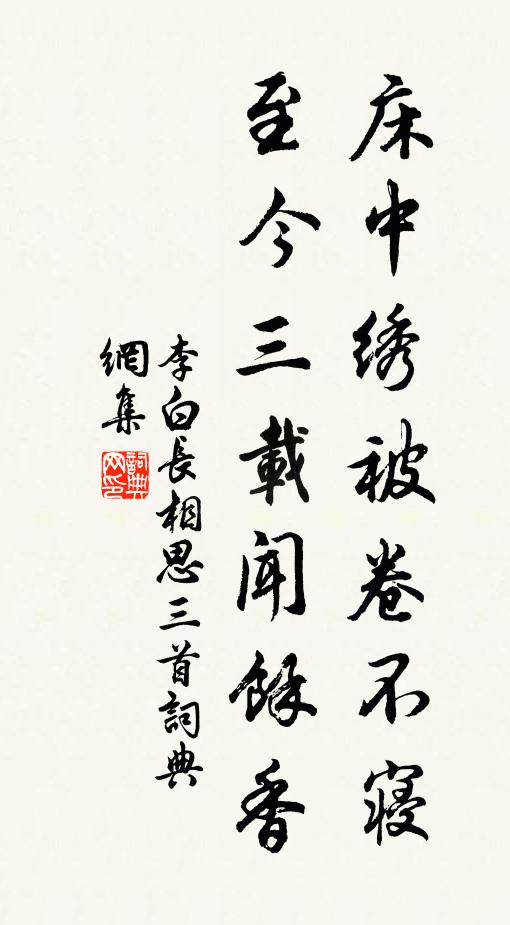 床中绣被卷不寝
至今三載聞餘香
李白長相思三首詞典
網集
詞典
网印